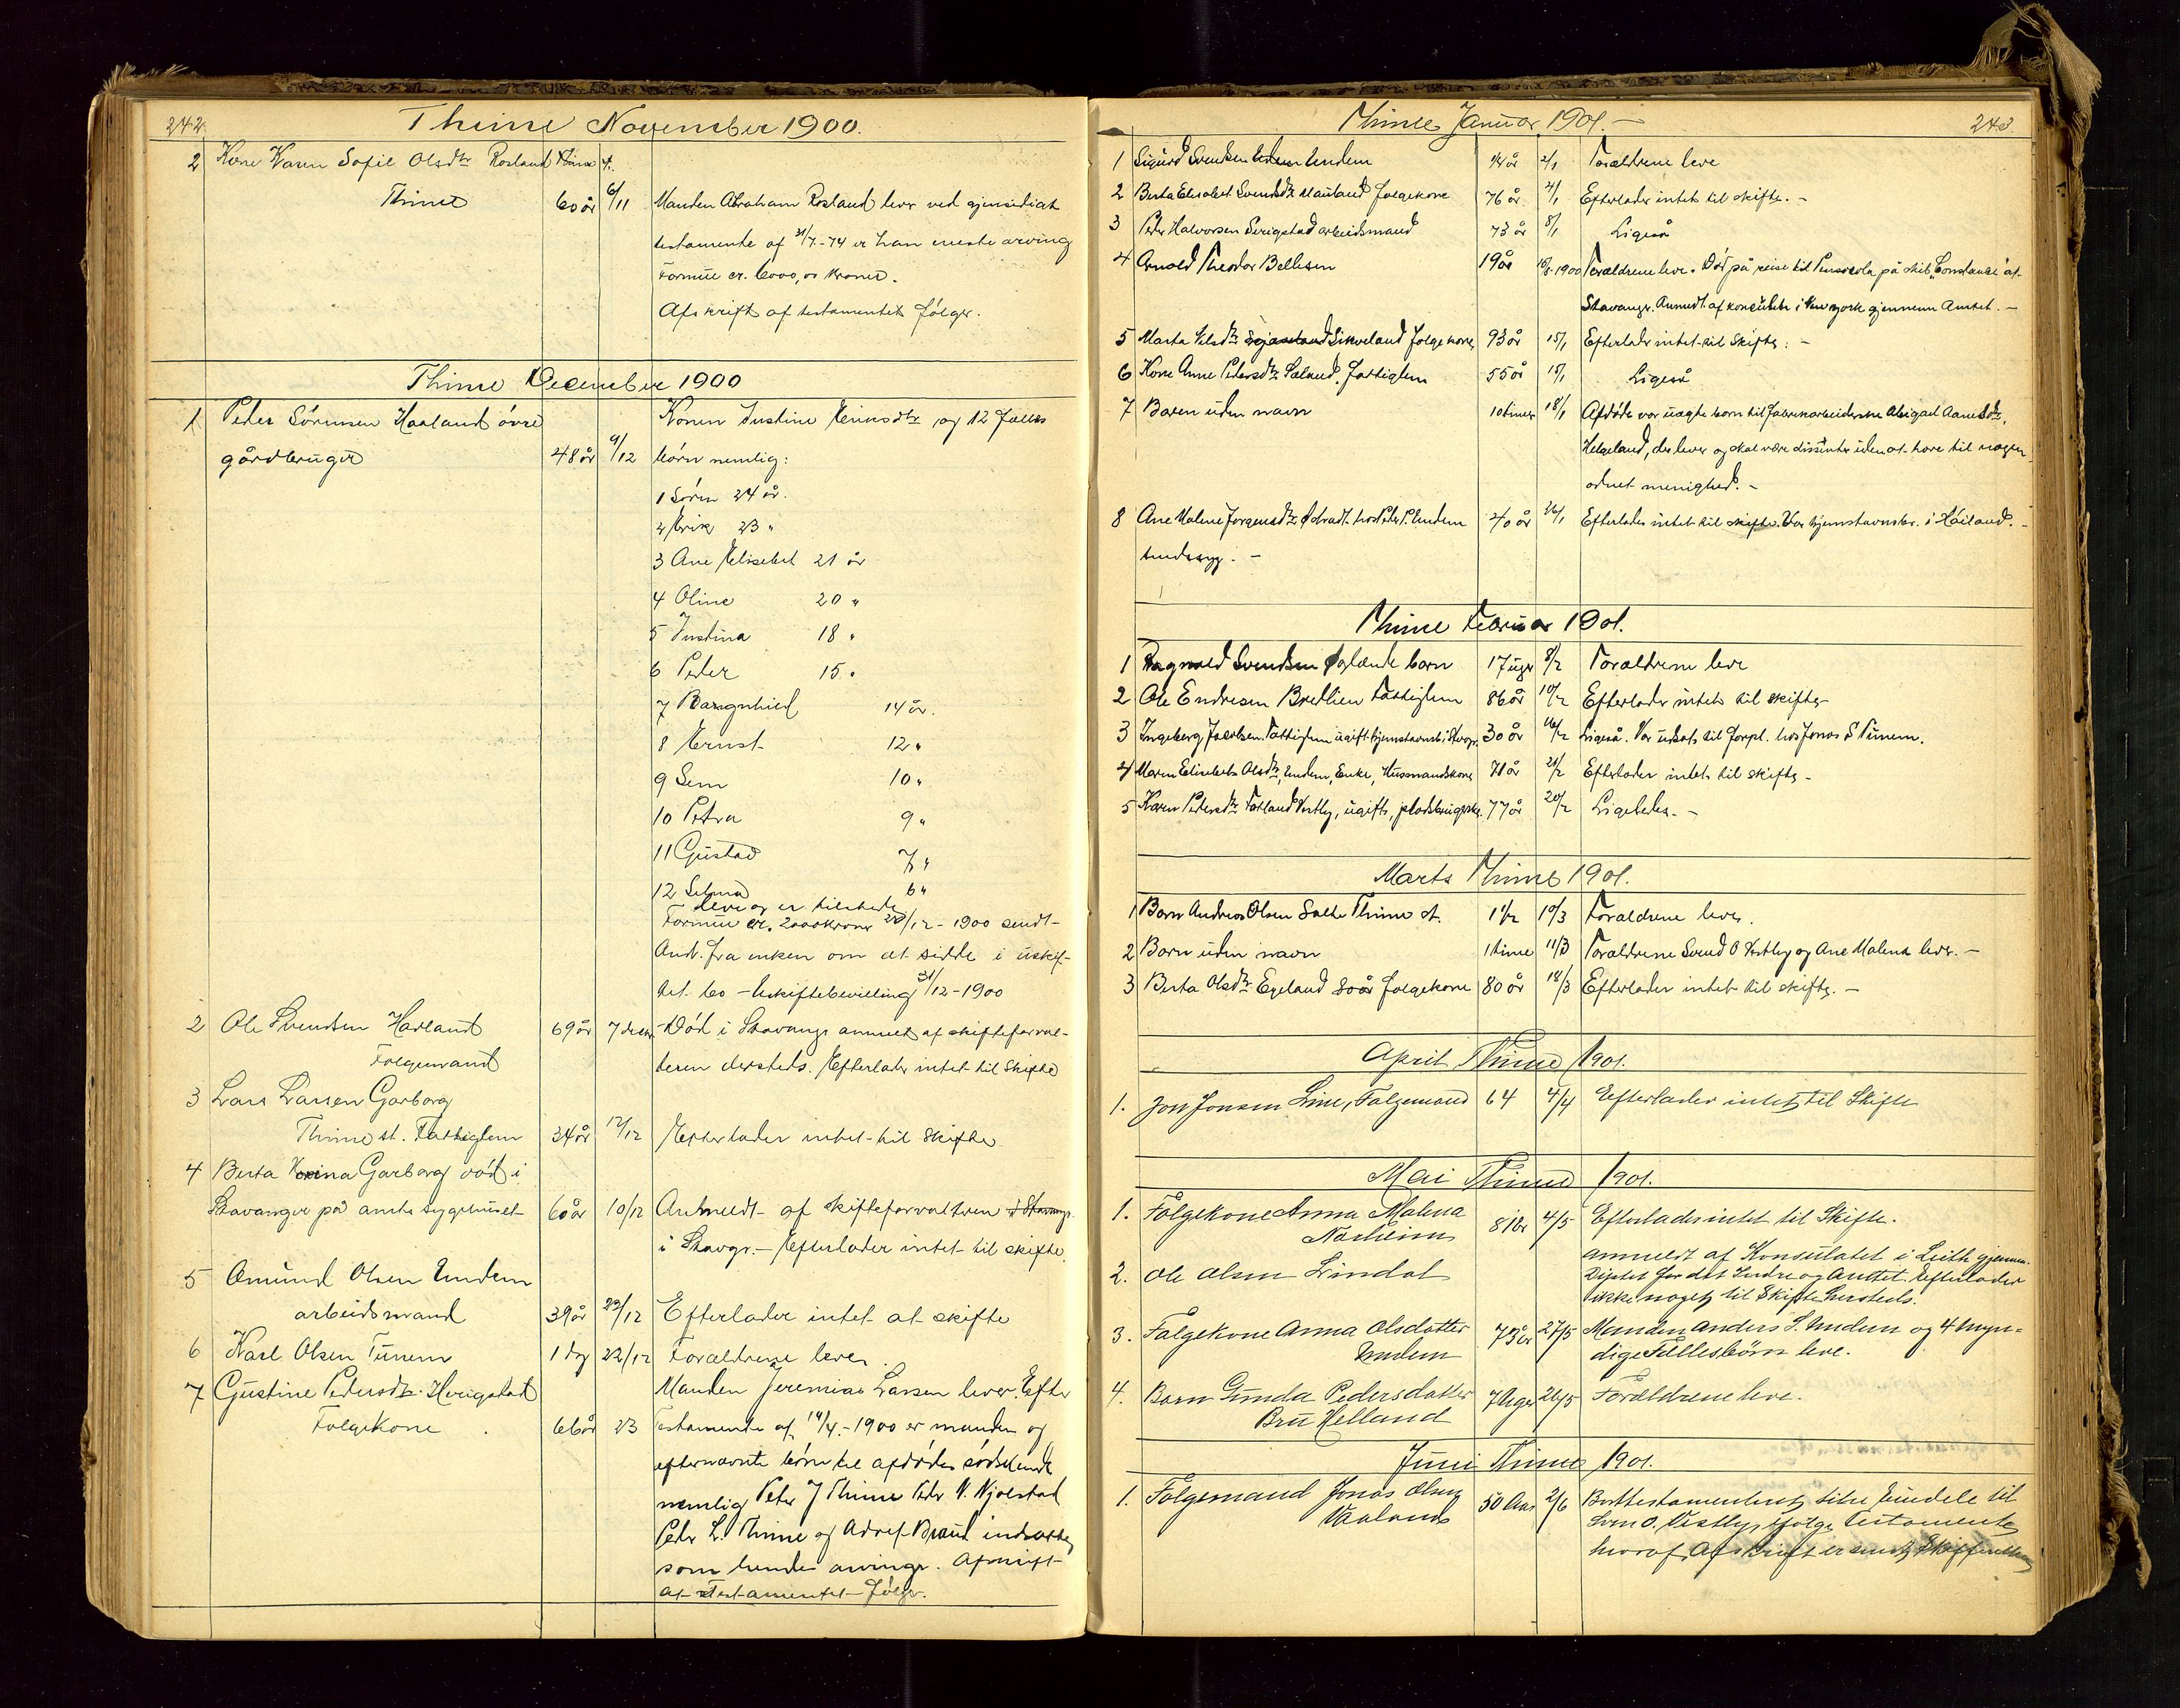 242.
Thime November 1900.
2 Kone Karen Sofie Olsdtr Rosland Thime st.
Thime 60 år 6/11 Manden Abraham Rosland lever ved gjensidigt
testamente af 31/7-74 er han eneste arving
Formue cr. 6000,00 kroner.
Afskrift af testamentet følger.
Thime December 1900
1 Peder Sörensen Haaland övre Konen Justine Eriksdtr og 12 fælles
gårdbruger 48 år 9/12 börn nemlig:
1 Sören 24 år.
2 Erik 23 "
3 Ane Elisebet 21 år
4 Oline 20 "
5 Justina 18 "
6 Peder 15 "
7 Rangnhild 14 år.
8 Ernst 12 "
9 Sem 10 "
10 Petra 9 "
11 Gustad 7 "
12 Selma 6 "
leve og er tilstede
Formue cr. 2000 kroner 28/12 - 1900 sendt
And. fra enken om at sidde i uskif-
tet bo - Uskiftebevilling 31/12-1900
2 Ole Svendsen Haaland 69 år 7 decbr Död i Stavanger anmeldt af skifteforval-
Folgemand teren dersteds. Efterlader intet til skifte
3 Lars Larsen Garborg
Thime st. Fattiglem 34 år 12/12 Efterlader intet til skifte
4 Berta Garborg död i
Stavanger på amts sygehuset 60 år 10/12 Anmeldt af skifteforvalteren
i Stavgr. - Efterlader intet til skifte.
5 Amund Olsen Undem
arbeidsmand 39 år 23/12 Efterlader intet at skifte
6 Karl Olsen Tunem 1 dag 22/12 Forældrene lever.
7 Gustine Pedersdtr. Herigstad Manden Jeremias Larsen lever. Efter
Folgekone 66 år 23 Testamente af 14/4-1900 er manden og
efternævnte börn til afdödes södskende
nemlig Peter J Thime Peder N. Njolstad
Peder L. Thime og Adolf Braut indsatte
som hendes arvinger. Afskrift
af Testamentet følger.
Thime Januar 1901. - 243.
1 Sigurd Svendsen Undem 14 år 2/1 Forældrene leve
2 Berta Elisabet Svendsdtr Mauland folgekone 76 år 4/1 Efterlader intet til skifte. -
3 Peder Halvorsen Serigstad arbeidsmand 73 år 8/1 Ligeså
4 Arnold Theodor Bellesen 19 år 1900 Forældrene leve. Död på reise til Pensacola på skib "Constanse" af
Stavanger. Anmeldt af konsulatet i New york gjennem Amtet. -
5 Marta Nilsdtr Sikveland folgekone 93 år 15/1 Efterlader intet til skifte. -
6 Kone Anne Pedersdtr Sæland. fattiglem 55 år 15/1 Ligeså
7 Baren uden navn 10 timer 18/1 Afdöde var uægte barn til fabrikarbeiderske Abigael Aanesdtr.
Helgeland, der lever og skal være dissenter uden at høre til nogen
ordnet menighed. -
8 Ane Malene Jorgensdtr Ödradt hos Peder P. Undem 40 år 26/1 Efterlader intet til skifte. Var hjemstavnsber. i Höiland. -
sindssyg. -
Thime Februar 1901.
1 Ragnvald Svendsen Öglænde barn 17 uger 8/2 Forældrene leve
2 Ole Endresen Bredlien Fattiglem 86 år 10/2 Efterlader intet til skifte
3 Ingeborg Jacobsen. Fattiglem ugift hjemstavnsb i Stvgr. 30 år 16/2 Ligeså. Var udsat til forpl. hos Jonas S Tunem.
4 Maren Elisabeth Olsdtr, Undem, Enke, Husmandskone 71 år 21/2 Efterlader intet til skifte -
5 Karen Pedersdtr Fotland Vestly, ugift, pladsbrugerske 77 år 20/2 Ligeledes. -
Marts Thime 1901.
1 Barn Andreas Olsen Salte Thime st. 1 1/2 10/3 Forældrene lever.
2 Barn uden navn 1 time 11/3 Forældrene Svend O Vestly og Ane Malena lever. -
3 Berta Olsdtr Egeland 80 år folgekone 80 år 18/3 Efterlader intet til skifte. -
April Thime 1901.
1. Jon Jonsen Line, Folgemand 64 4/4 Efterlader intet til Skifte
Mai Thime 1901.
1. Folgekone Anna Malena
Norheim 81 år 4/5 Efterlader intet til Skifte.
2. Ole Olsen Lindal anmeldt af Konsulatet i Leith gjennem.
Deptet for det Indre og Amtet. Efterlader
ikke noget til Skifte hersteds.
3. Folgekone Anna Olsdatter 73 år 27/5 Manden Anders S. Undem og 4 myn-
Undem dige Fællesbörn leve.
4. Barn Gunda Pedersdatter 7 Uger 26/5 Forældrene leve.
Bru Helland
Juni Thime 1901.
1. Folgemand Jonas Olsen 50 Aar 2/6 Borttestamenteret sine Eiendele til
Vaaland Sven O. Vestly, ifølge Testamente
hvoraf Afskrift er sendt Skifteretten